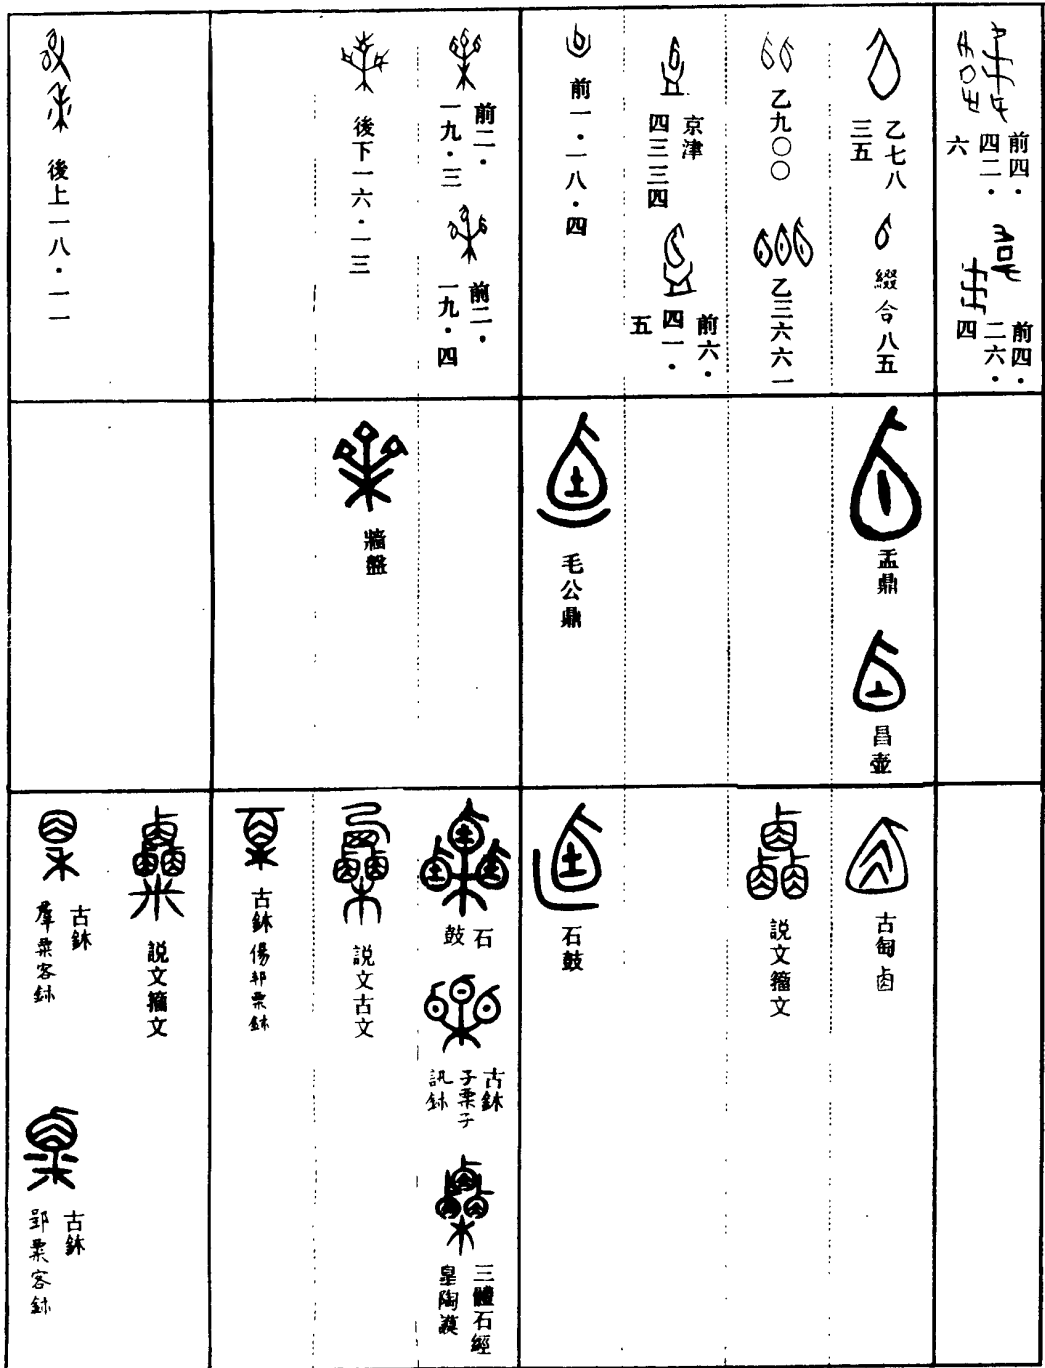 前四・
四二・
六
前四・
二六・
四
乙七八
三五
綴合八五
乙九〇〇
乙三六六一
京津
四三三四
前六・
四一・
五
前一・一八・四
前二・
一九・三
前二・
一九・四
後下一六・一三
後上一八・一一
盂鼎
昌壺
毛公鼎
牆盤
古匋鹵
説文籀文
石鼓
石
鼓
古鉢
子栗子
訊鉢
三體石經
皋陶謨
説文古文
古鉢
説文籀文
古鉢
粟客鉢
古鉢
粟客鉢